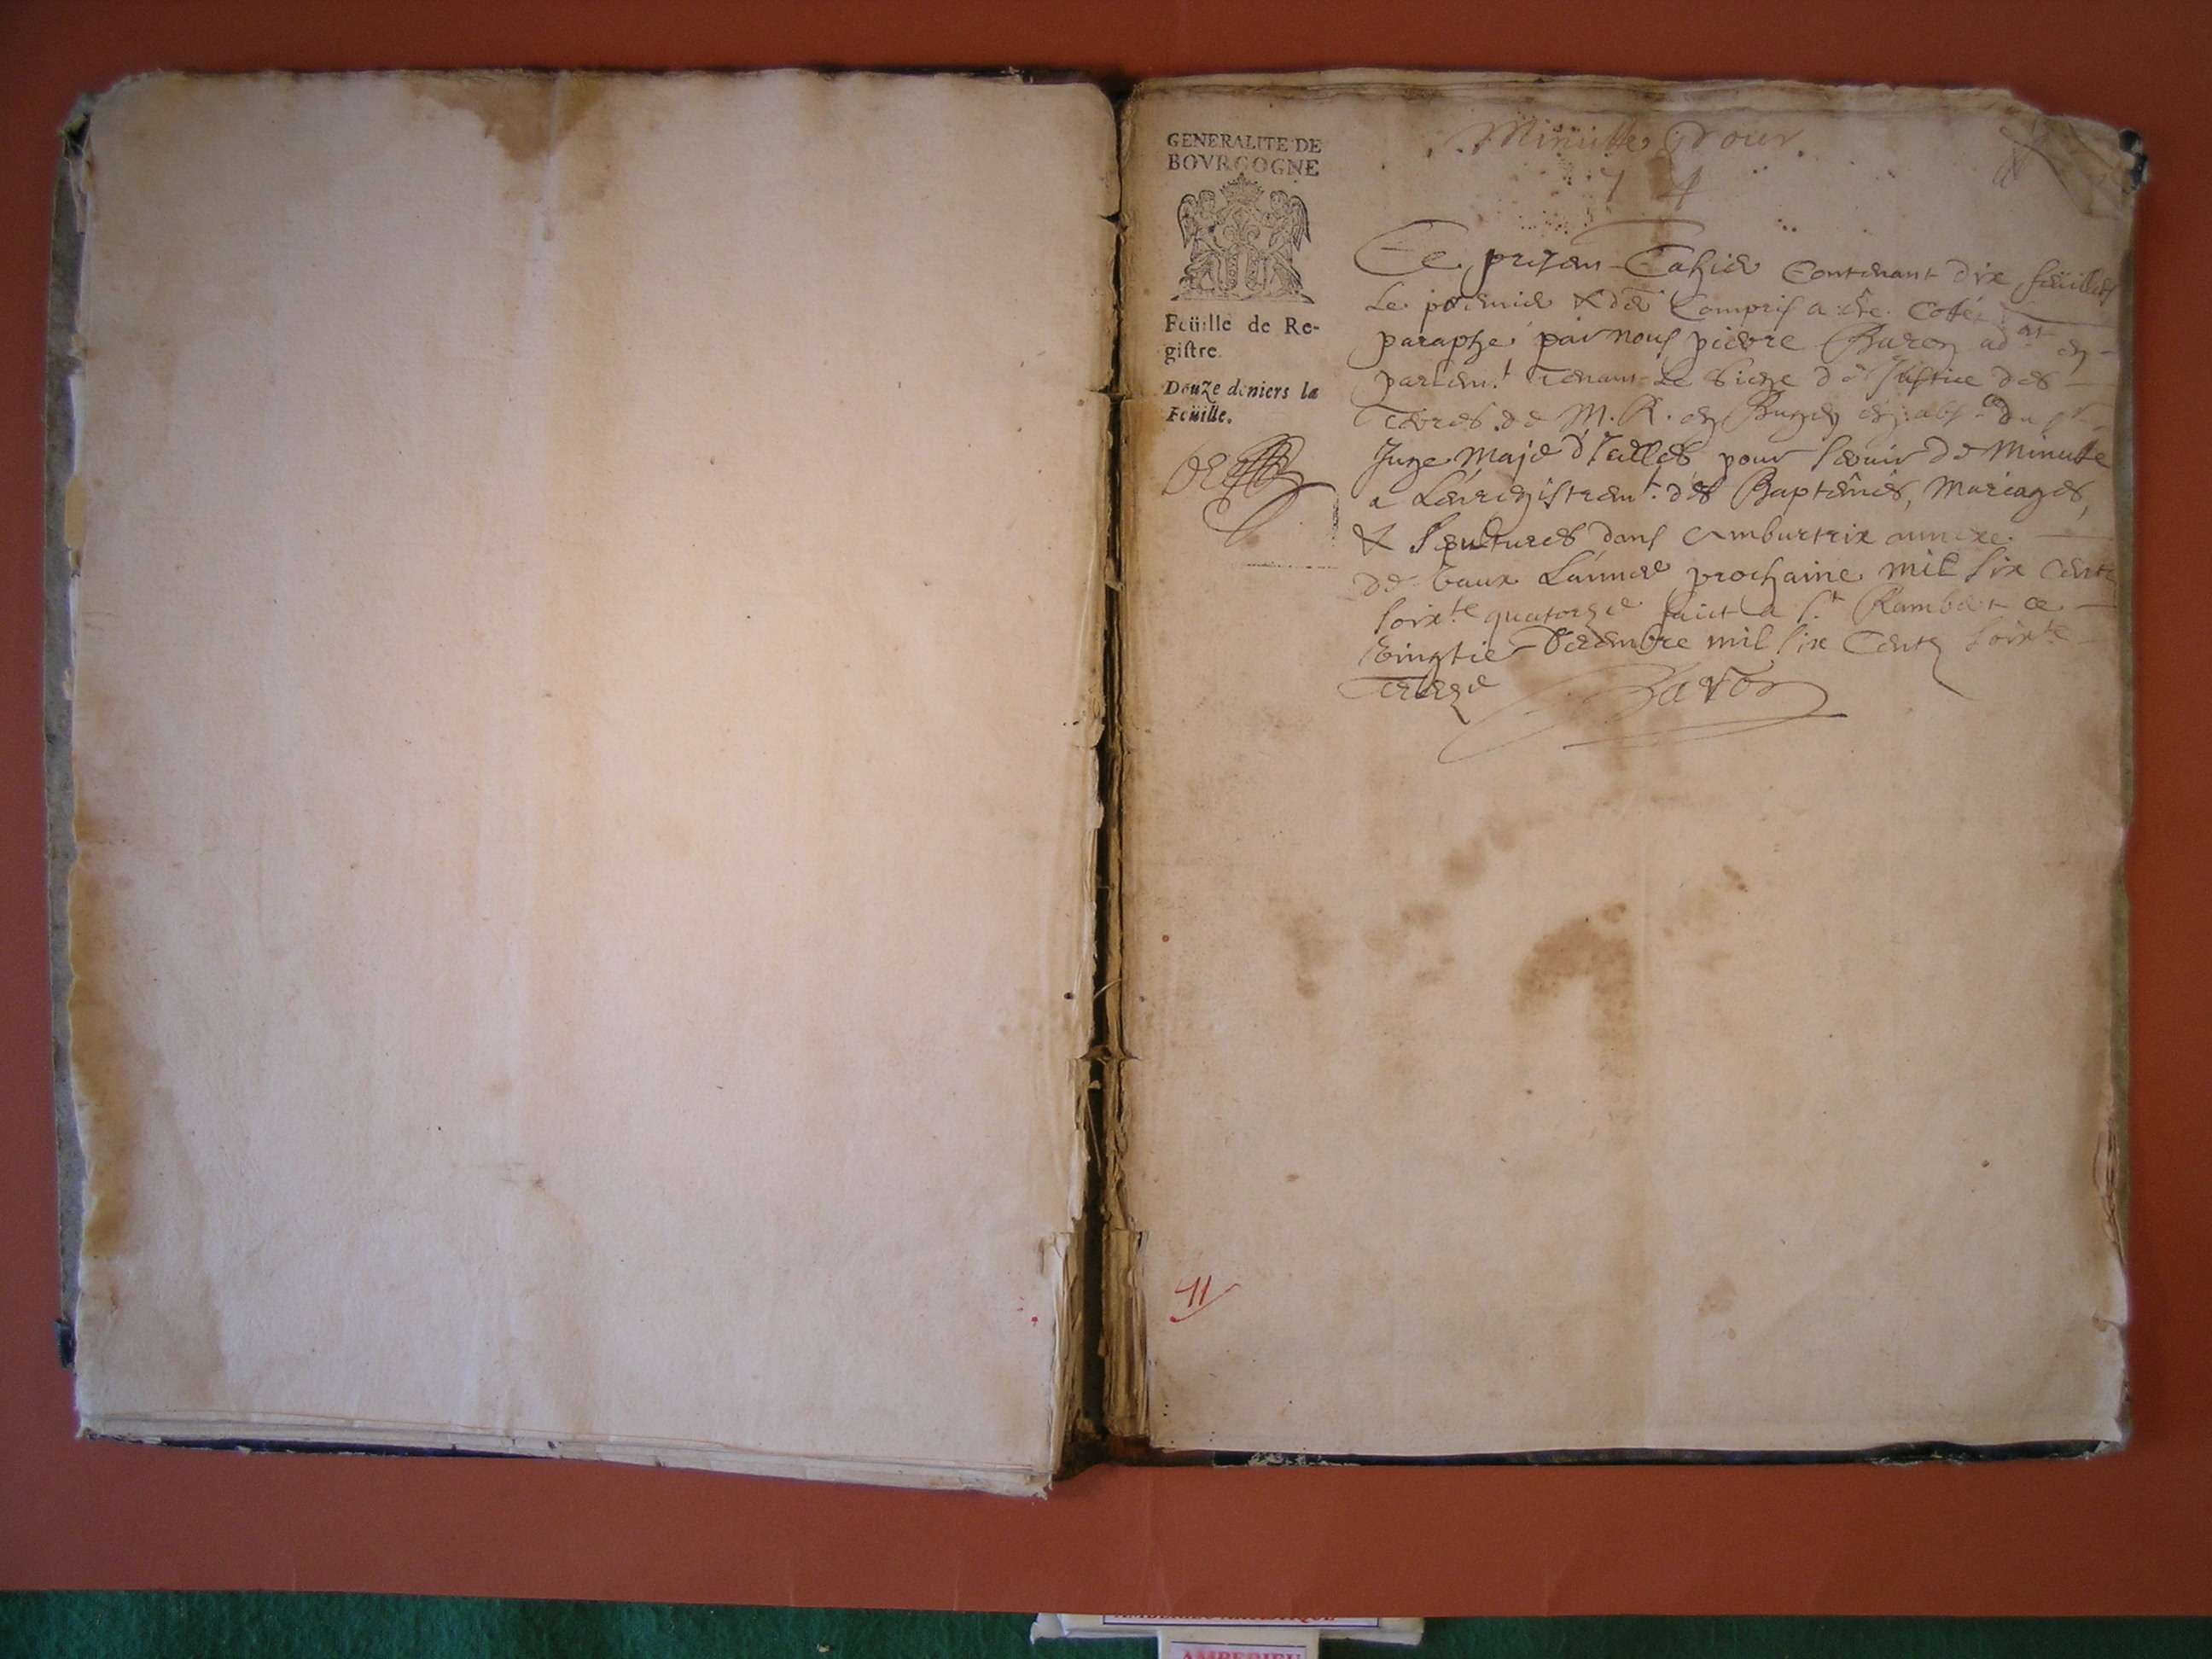 GENERALITE DE
BOVRGOGNE
Feüille de Re-
gistre.
Douze deniers la
Feüille.
Minutte pour
74
Ce presens Cahier Contenant dix feuilles
Le premier & der Compris a été Cotté
paraphé par nous pierre Baron adat en
parlemt tenant Le Siege de Justice des
Terres de M. R. en Bugey en absce du sr
Juge Maje d'Icelles pour servir de Minutte
a L'enregistremt des Baptêmes, Mariages,
& Sepultures dans Amburtrix annexe
de Vaux L'année prochaine mil six Cents
soixte quatorze faict a St Rambert ce
Vingtie Decembre mil six Cents soixte
treize
Baron
11
AMBERIEU